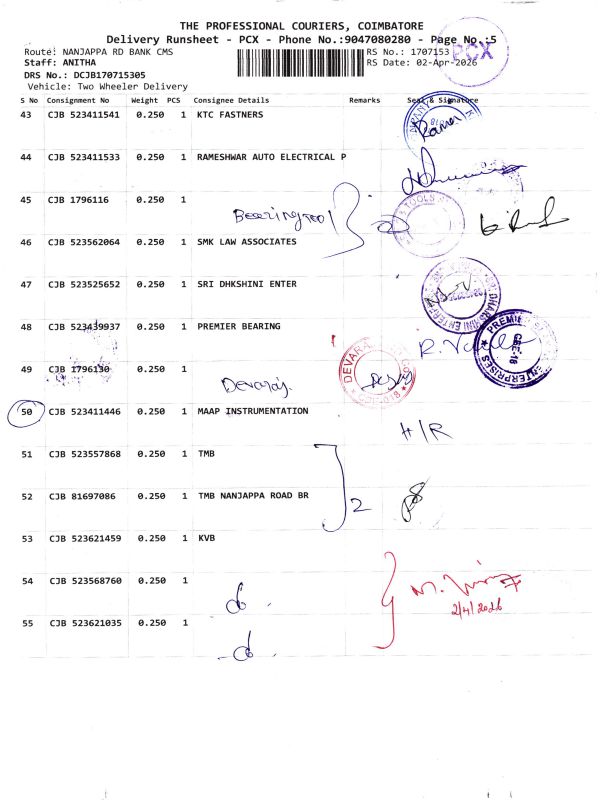 THE PROFESSIONAL COURIERS, COIMBATORE
Delivery Runsheet - PCX - Phone No.:9047080280 - Page No.:5
Route: NANJAPPA RD BANK CMS RS No.: 1707153
Staff: ANITHA RS Date: 02-Apr-2026
DRS No.: DCJB170715305
Vehicle: Two Wheeler Delivery
PCX
S No Consignment No Weight PCS Consignee Details Remarks Seal & Signature
43 CJB 523411541 0.250 1 KTC FASTNERS
44 CJB 523411533 0.250 1 RAMESHWAR AUTO ELECTRICAL P
45 CJB 1796116 0.250 1
46 CJB 523562064 0.250 1 SMK LAW ASSOCIATES
47 CJB 523525652 0.250 1 SRI DHKSHINI ENTER
48 CJB 523439937 0.250 1 PREMIER BEARING
49 CJB 1796130 0.250 1
Devaraj
50 CJB 523411446 0.250 1 MAAP INSTRUMENTATION
H/R
51 CJB 523557868 0.250 1 TMB
52 CJB 81697086 0.250 1 TMB NANJAPPA ROAD BR
2
53 CJB 523621459 0.250 1 KVB
54 CJB 523568760 0.250 1
2/4/2026
55 CJB 523621035 0.250 1